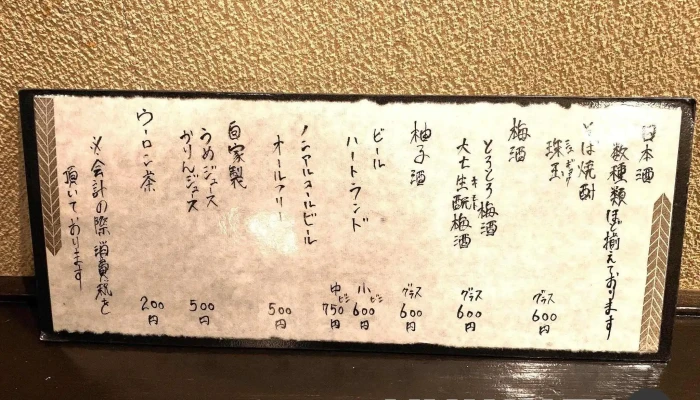 日本酒
数種類ほど揃えております
そば焼酎
珠玉
グラス
600円
梅酒
とろとろ梅酒
大七生酛梅酒
グラス
600円
柚子酒
グラス
600円
ビール
ハートランド
小ビン
600円
中ビン
750円
ノンアルコールビール
オールフリー
500円
自家製
うめジュース
かりんジュース
500円
ウーロン茶
200円
※会計の際消費税を
頂いております